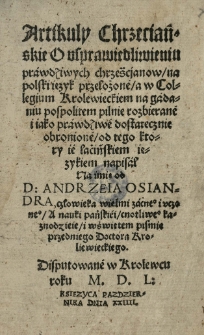 Artikuły Chrzeciań-
skie O uspráwiedliwieniu
práwdziwych chrześcijanow/ ná
polski ięzyk przełożone/ á w Col-
legium Krolewieckiem ná gádá-
niu pospolitem pilnie rozbieráne
i iáko práwdziwé dostátecznie
obronioné/ od tego kto-
ry ié łácińskiem ię-
zykiem nápisáł
Ná imię od
D: ANDRZEIA OSIAN-
DRA, człowieká wielmi zácne° i uczo
ne°/ A náuki páńskiéi/ cnotliwé° ká-
znodzieie/ i w świętem piśmie
przedniego Doctorá Kro-
lewieckiego.
Disputowáné w Krolewcu
roku M. D. L:
KSIEZYCA PAZDZIER-
NIKA DNIA XXIIII.